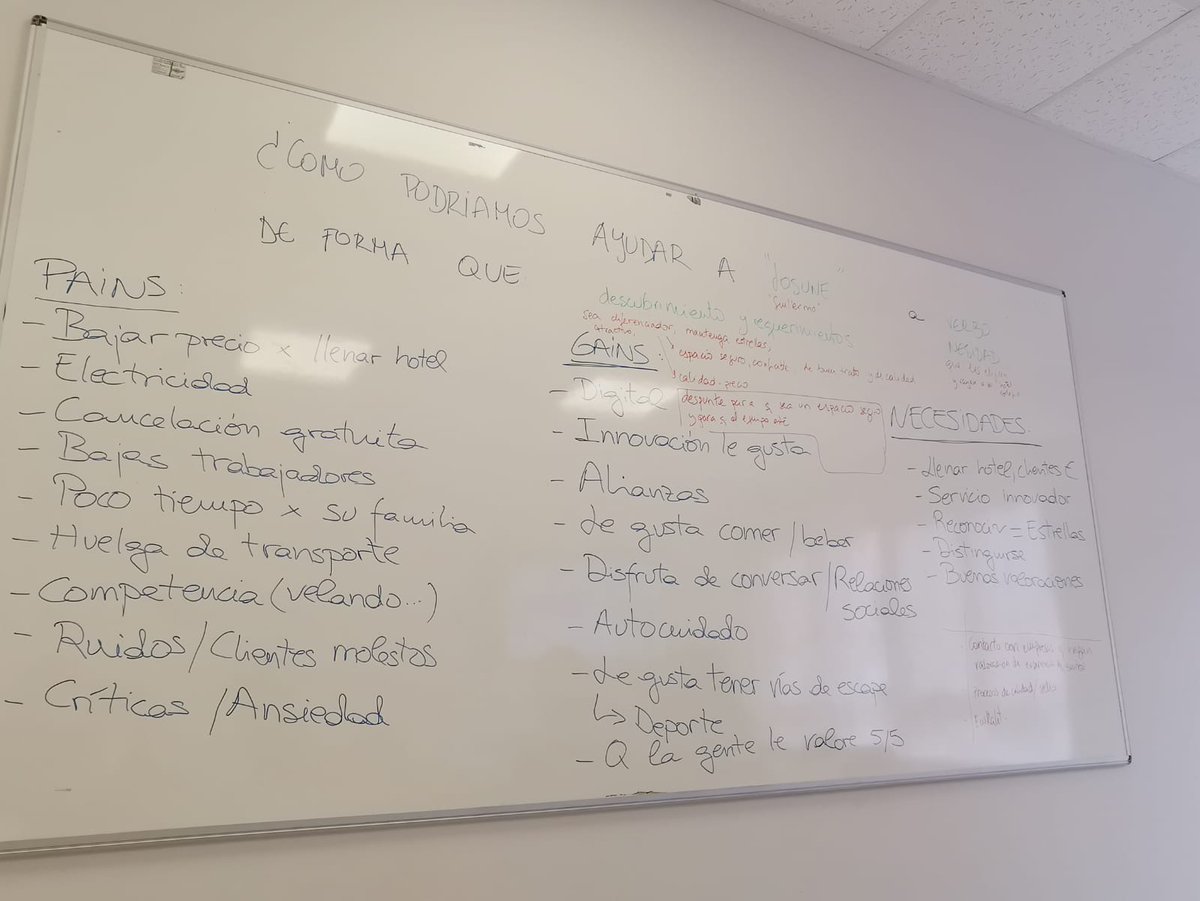 ¿COMO PODRIAMOS AYUDAR A "JOSUNE" a VERBO
"Guillermo"
DE FORMA QUE
PAINS:
- Bajar precio x llenar hotel
- Electricidad
- Cancelación gratuita
- Bajas trabajadores
- Poco tiempo x su familia
- Huelga de transporte
- Competencia (velando...)
- Ruidos/Clientes molestos
- Críticas /Ansiedad
descubrimiento y requerimientos
sea diferenciador, mantenga estrellas,
atractivo,
espacio seguro, confiable de buen trato y de calidad
calidad-precio
GAINS:
- Digital
para q sea un espacio seguro
- Innovación le gusta
- Alianzas
- Le gusta comer/beber
- Disfruta de conversar/Relaciones
sociales
- Autocuidado
- Le gusta tener vías de escape
↳ Deporte
- Q la gente le valore 5/5
NECESIDADES:
- Llenar hotel, clientes €
- Servicio innovador
- Reconociv = Estrellas
- Distinguirse
- Buenas valoraciones
Contacto con empresas